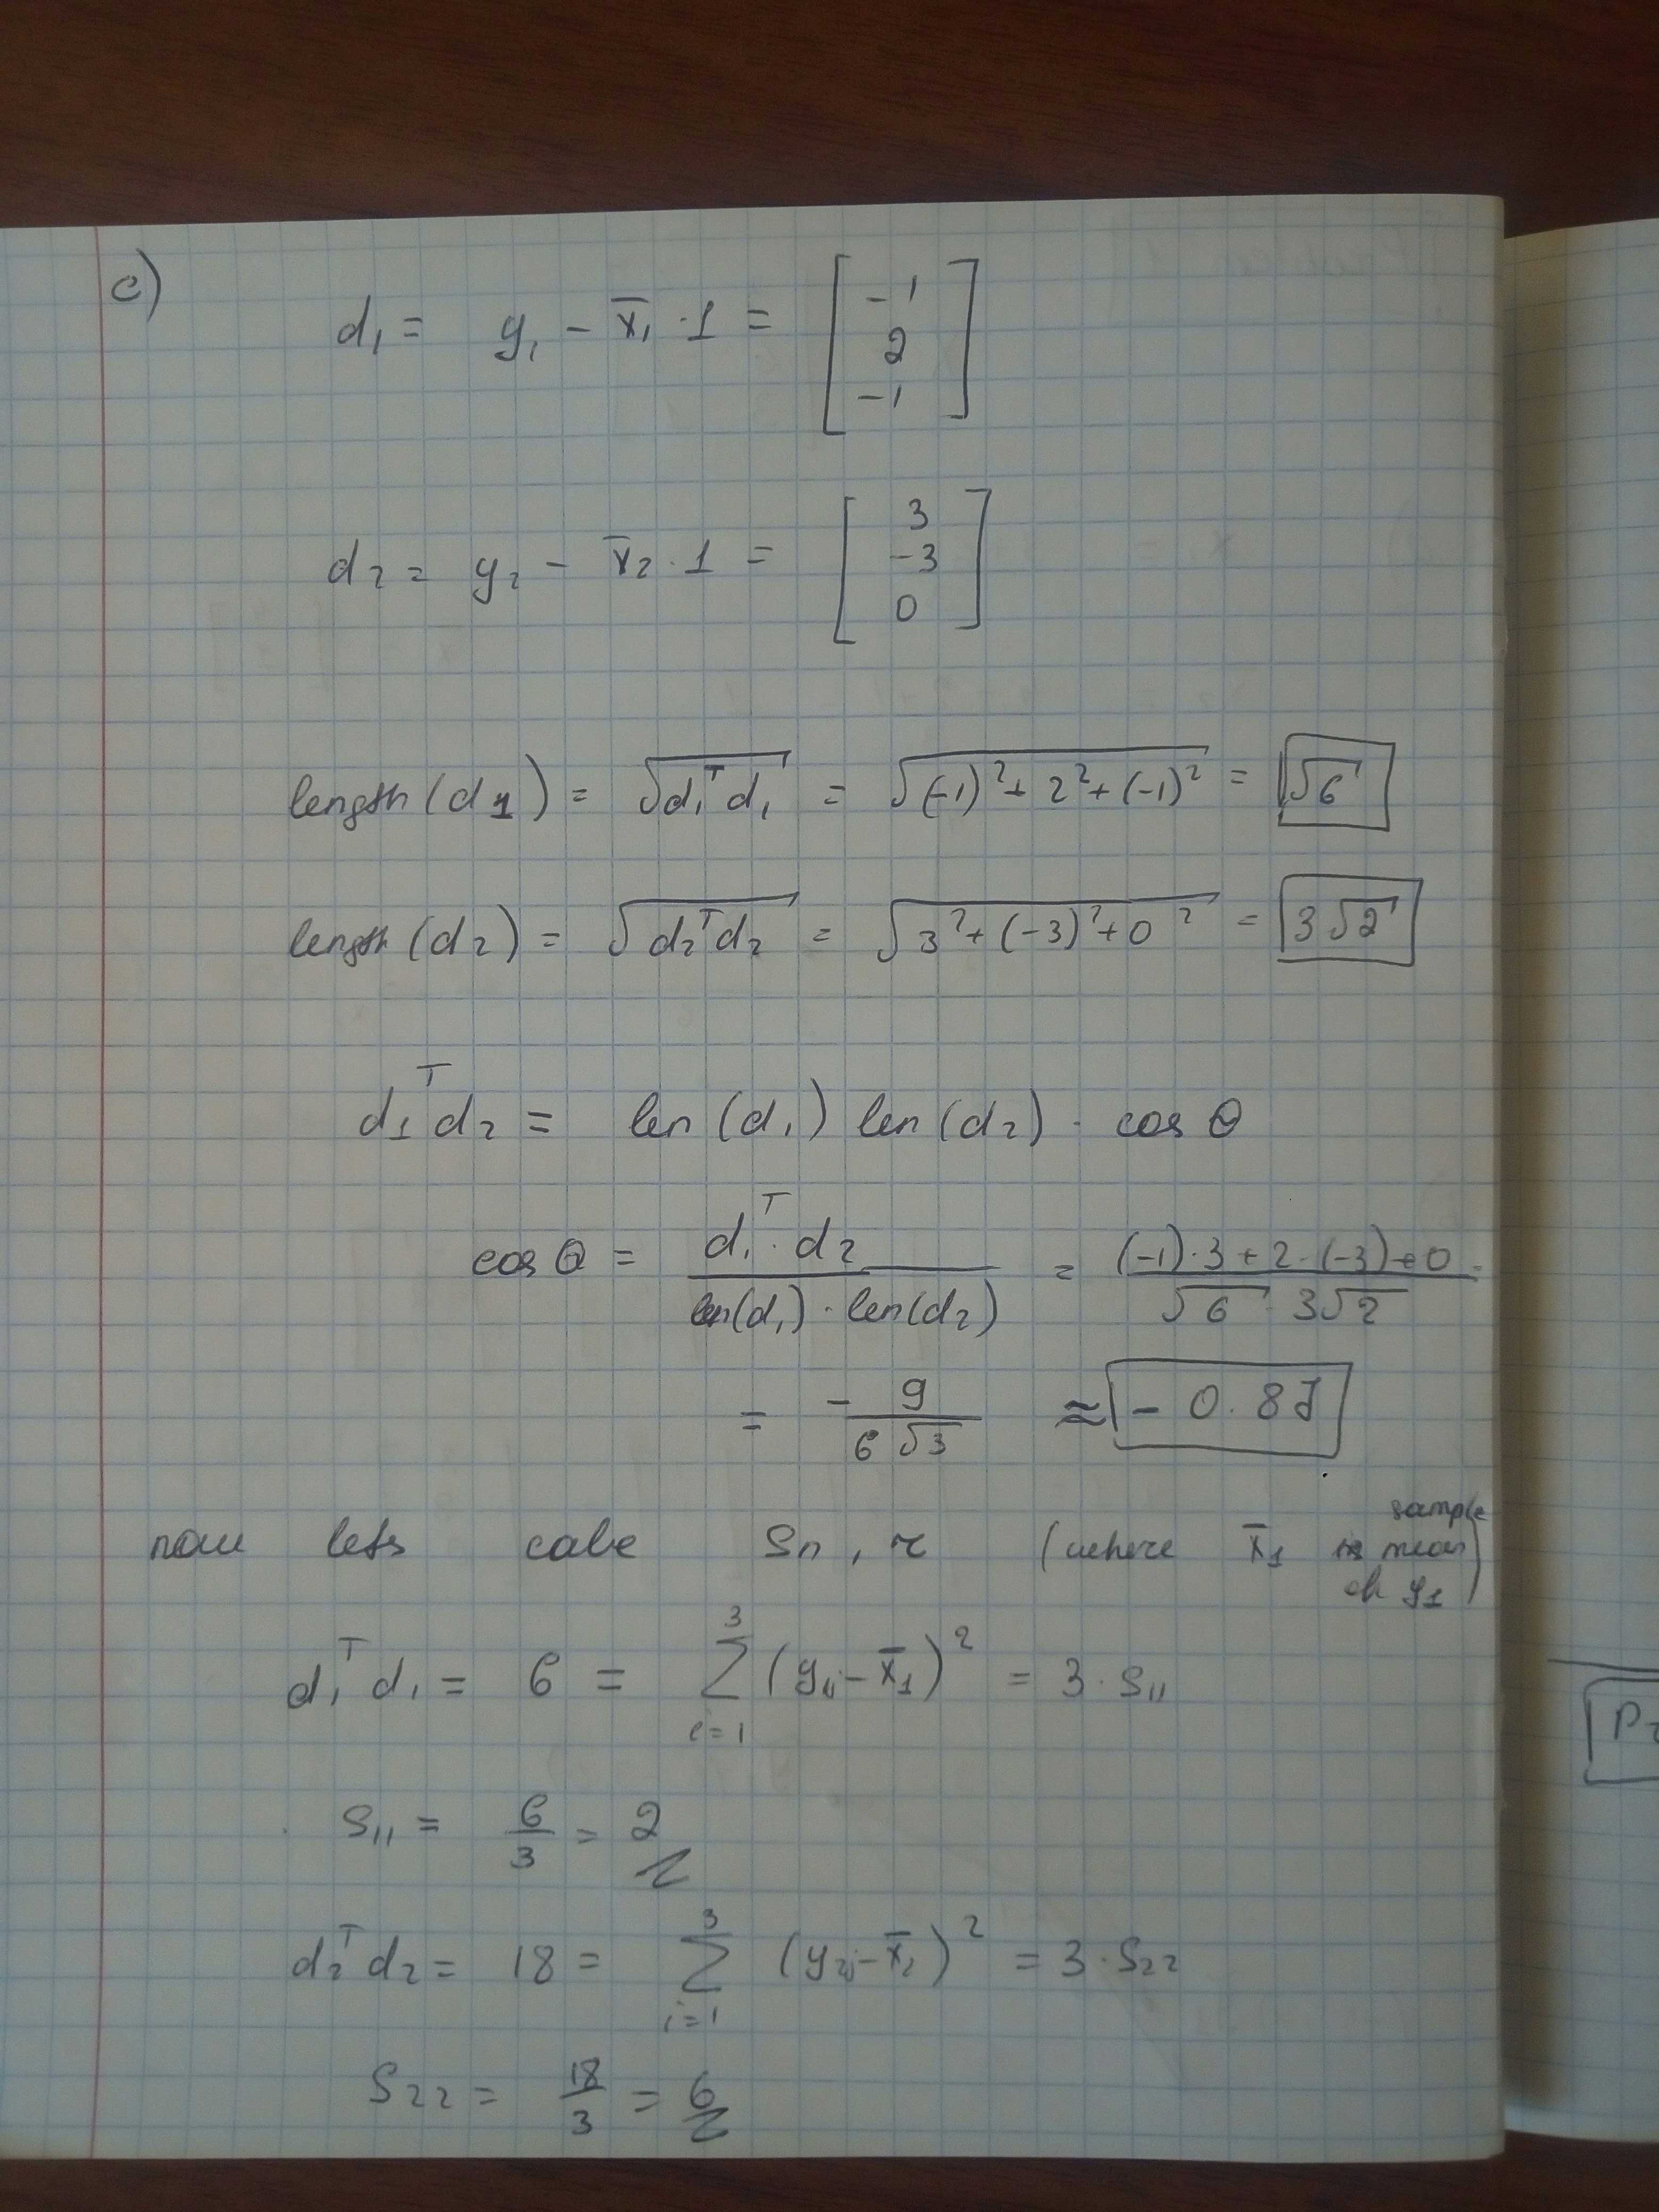 c)
d₁ = y₁ − x̄₁ · 1 = [ −1
2
−1 ]
d₂ = y₂ − x̄₂ · 1 = [ 3
−3
0 ]
length(d1) = √(d₁ᵀd₁) = √((−1)² + 2² + (−1)²) = √6
length(d₂) = √(d₂ᵀd₂) = √(3² + (−3)² + 0²) = 3√2
d₁ᵀd₂ = len(d₁) len(d₂) · cos θ
cos θ = (d₁ᵀ · d₂) / (len(d₁) · len(d₂)) = ((−1)·3 + 2·(−3) + 0) / (√6 · 3√2) =
= − 9 / (6√3) ≈ − 0.87
now lets calc Sn, r (where x̄₁ is sample mean of y₁)
d₁ᵀd₁ = 6 = Σ³ᵢ₌₁ (y₁ⱼ − x̄₁)² = 3 · S₁₁
S₁₁ = 6/3 = 2
d₂ᵀd₂ = 18 = Σ³ᵢ₌₁ (y₂ⱼ − x̄₂)² = 3 · S₂₂
S₂₂ = 18/3 = 6